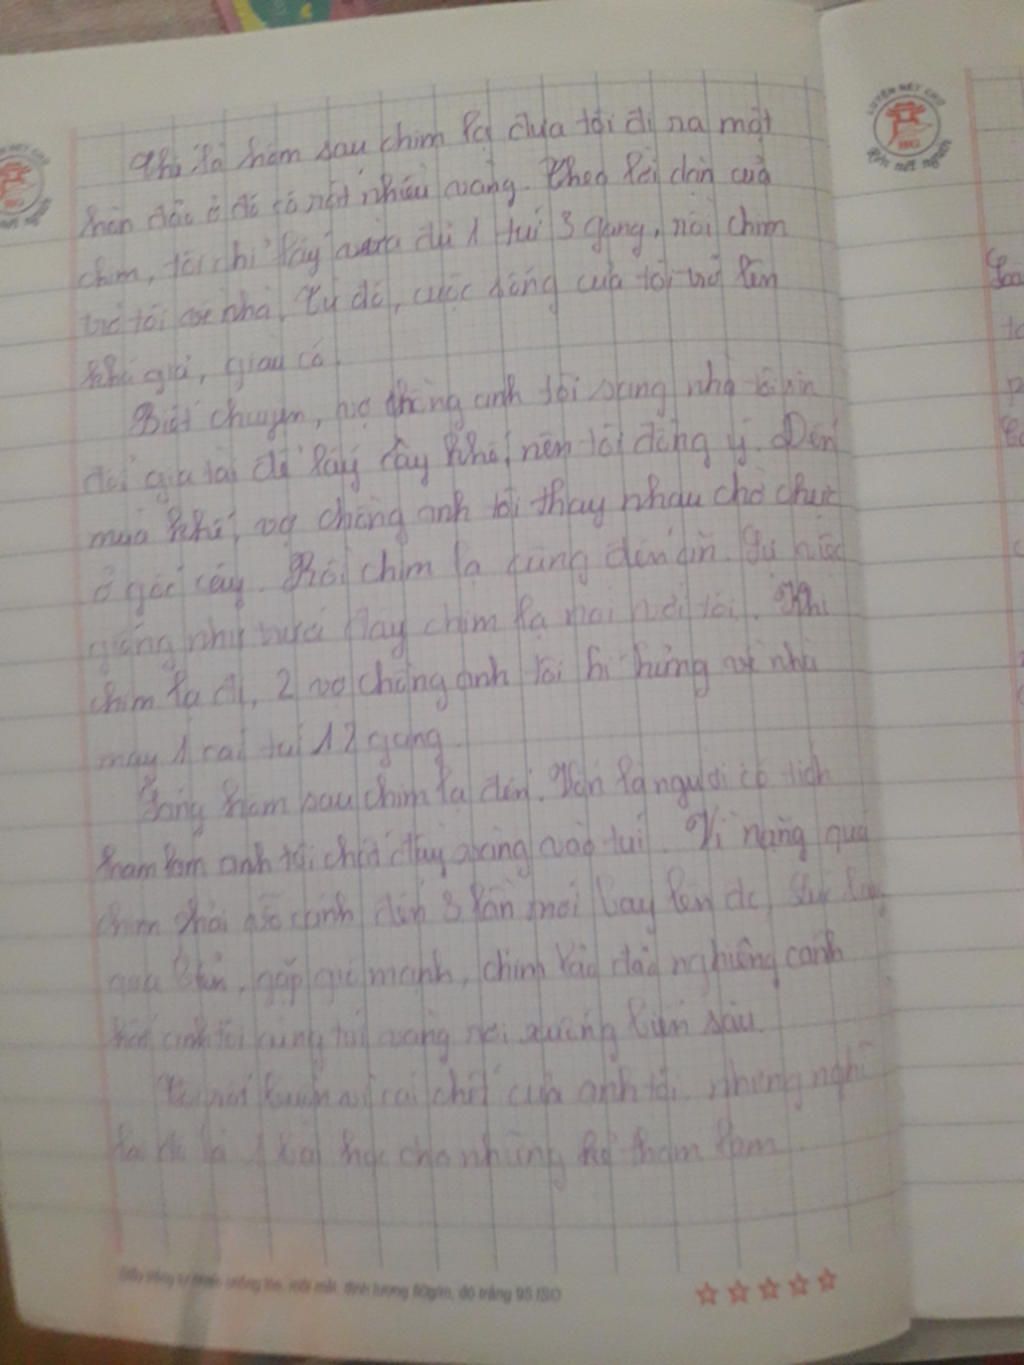 Thế là hôm sau chim lạ đưa tôi đi ra một
hòn đảo ở đó có rất nhiều vàng. Theo lời dặn của
chim, tôi chỉ lấy vừa đủ 1 túi 3 gang, rồi chim
trở tôi về nhà. Từ đó, cuộc sống của tôi trở lên
khá giả, giàu có.
Biết chuyện, vợ chồng anh tôi sang nhà tôi xin
đổi gia tài để lấy cây khế, nên tôi đồng ý. Đến
mùa khế, vợ chồng anh tôi thay nhau chờ chực
ở gốc cây. Rồi chim lạ cũng đến ăn. Sự việc
giống như trước đây chim lạ nói với tôi. Khi
chim lạ đi, 2 vợ chồng anh tôi hí hửng về nhà
may 1 cái túi 12 gang.
Sáng hôm sau chim lạ đến. Vốn là người có tính
tham lam anh tôi chất đầy vàng vào túi. Vì nặng quá
chim phải vỗ cánh đến 3 lần mới bay lên đc,
qua biển, gặp gió mạnh, chim lảo đảo nghiêng cánh
hất anh tôi cùng túi vàng rơi xuống biển sâu.
Tôi rất buồn vì cái chết của anh tôi, nhưng nghĩ
lại đó là 1 bài học cho những kẻ tham lam.
độ trắng 95 ISO
LUYỆN NÉT CHỮ
RÈN NẾT NGƯỜI